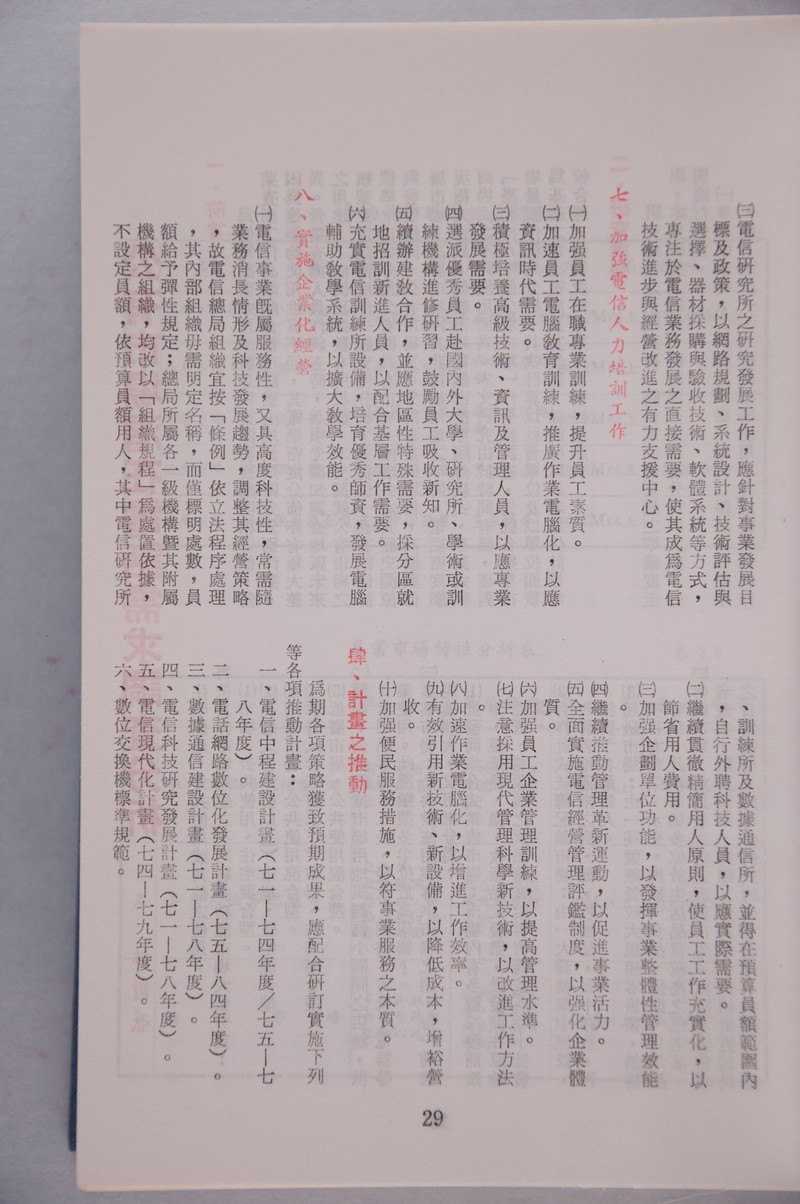 ㈢電信研究所之研究發展工作，應針對事業發展目
標及政策，以網路規劃、系統設計、技術評估與
選擇、器材採購與驗收技術、軟體系統等方式，
專注於電信業務發展之直接需要，使其成爲電信
技術進步與經營改進之有力支援中心。
七、加强電信人力培訓工作
㈠加强員工在職專業訓練，提升員工素質。
㈡加速員工電腦敎育訓練，推廣作業電腦化，以應
資訊時代需要。
㈢積極培養高級技術、資訊及管理人員，以應專業
發展需要。
㈣選派優秀員工赴國內外大學、研究所、學術或訓
練機構進修研習，鼓勵員工吸收新知。
㈤續辦建敎合作，並應地區性特殊需要，採分區就
地招訓新進人員，以配合基層工作需要。
㈥充實電信訓練所設備，培育優秀師資，發展電腦
輔助敎學系統，以擴大敎學效能。
八、實施企業化經營
㈠電信事業旣屬服務性，又具高度科技性，常需隨
業務消長情形及科技發展趨勢，調整其經營策略
，故電信總局組織宜按「條例」依立法程序處理
，其內部組織毋需明定名稱，而僅標明處數，員
額給予彈性規定；總局所屬各一級機構暨其附屬
機構之組織，均改以「組織規程」爲處置依據，
不設定員額，依預算員額用人，其中電信研究所
、訓練所及數據通信所，並得在預算員額範圍內
，自行外聘科技人員，以應實際需要。
㈡繼續貫徹精簡用人原則，使員工工作充實化，以
節省用人費用。
㈢加强企劃單位功能，以發揮事業整體性管理效能
。
㈣繼續推動管理革新運動，以促進事業活力。
㈤全面實施電信經營管理評鑑制度，以强化企業體
質。
㈥加强員工企業管理訓練，以提高管理水準。
㈦注意採用現代管理科學新技術，以改進工作方法
。
㈧加速作業電腦化，以增進工作效率。
㈨有效引用新技術、新設備，以降低成本，增裕營
收。
㈩加强便民服務措施，以符事業服務之本質。
肆、計畫之推動
爲期各項策略獲致預期成果，應配合研訂實施下列
等各項推動計畫：
一、電信中程建設計畫（七一—七四年度／七五—七
八年度）。
二、電話網路數位化發展計畫（七五—八四年度）。
三、數據通信建設計畫（七一—七八年度）。
四、電信科技研究發展計畫（七一—七八年度）。
五、電信現代化計畫（七四—七九年度）。
六、數位交換機標準規範。
29